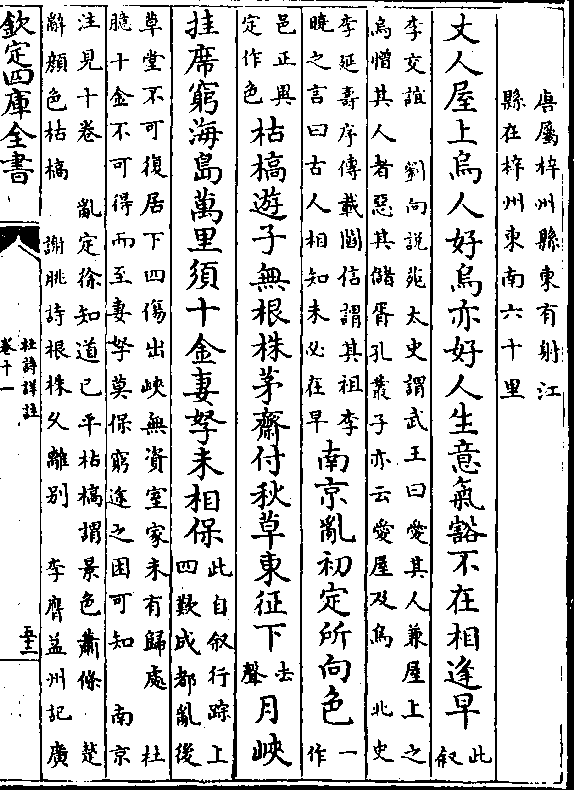 唐屬梓州縣東有射江
縣在梓州東南六十里
丈人屋上烏人好烏亦好人生意氣豁不在相逢早此
叙
李交誼 劉向說苑太史謂武王曰愛其人兼屋上之
烏憎其人者惡其儲胥孔叢子亦云愛屋及烏 北史
李延壽序傳載閻信謂其祖李
曉之言曰古人相知未必在早
南京亂初定所向色一
作
邑正異
定作色
枯槁遊子無根株茅齋付秋草東征下去
聲
月峽
挂席窮海島萬里須十金妻孥未相保此自叙行踪上
四歎成都亂後
草堂不可復居下四傷出峽無資室家未有歸處 杜
臆十金不可得而至妻孥莫保窮途之困可知 南京
注見十卷 亂定徐知道已平枯槁謂景色蕭條 楚
辭顔色枯槁 謝眺詩根株久離别 李膺益州記廣
欽定四庫全書
杜詩詳註
卷十一